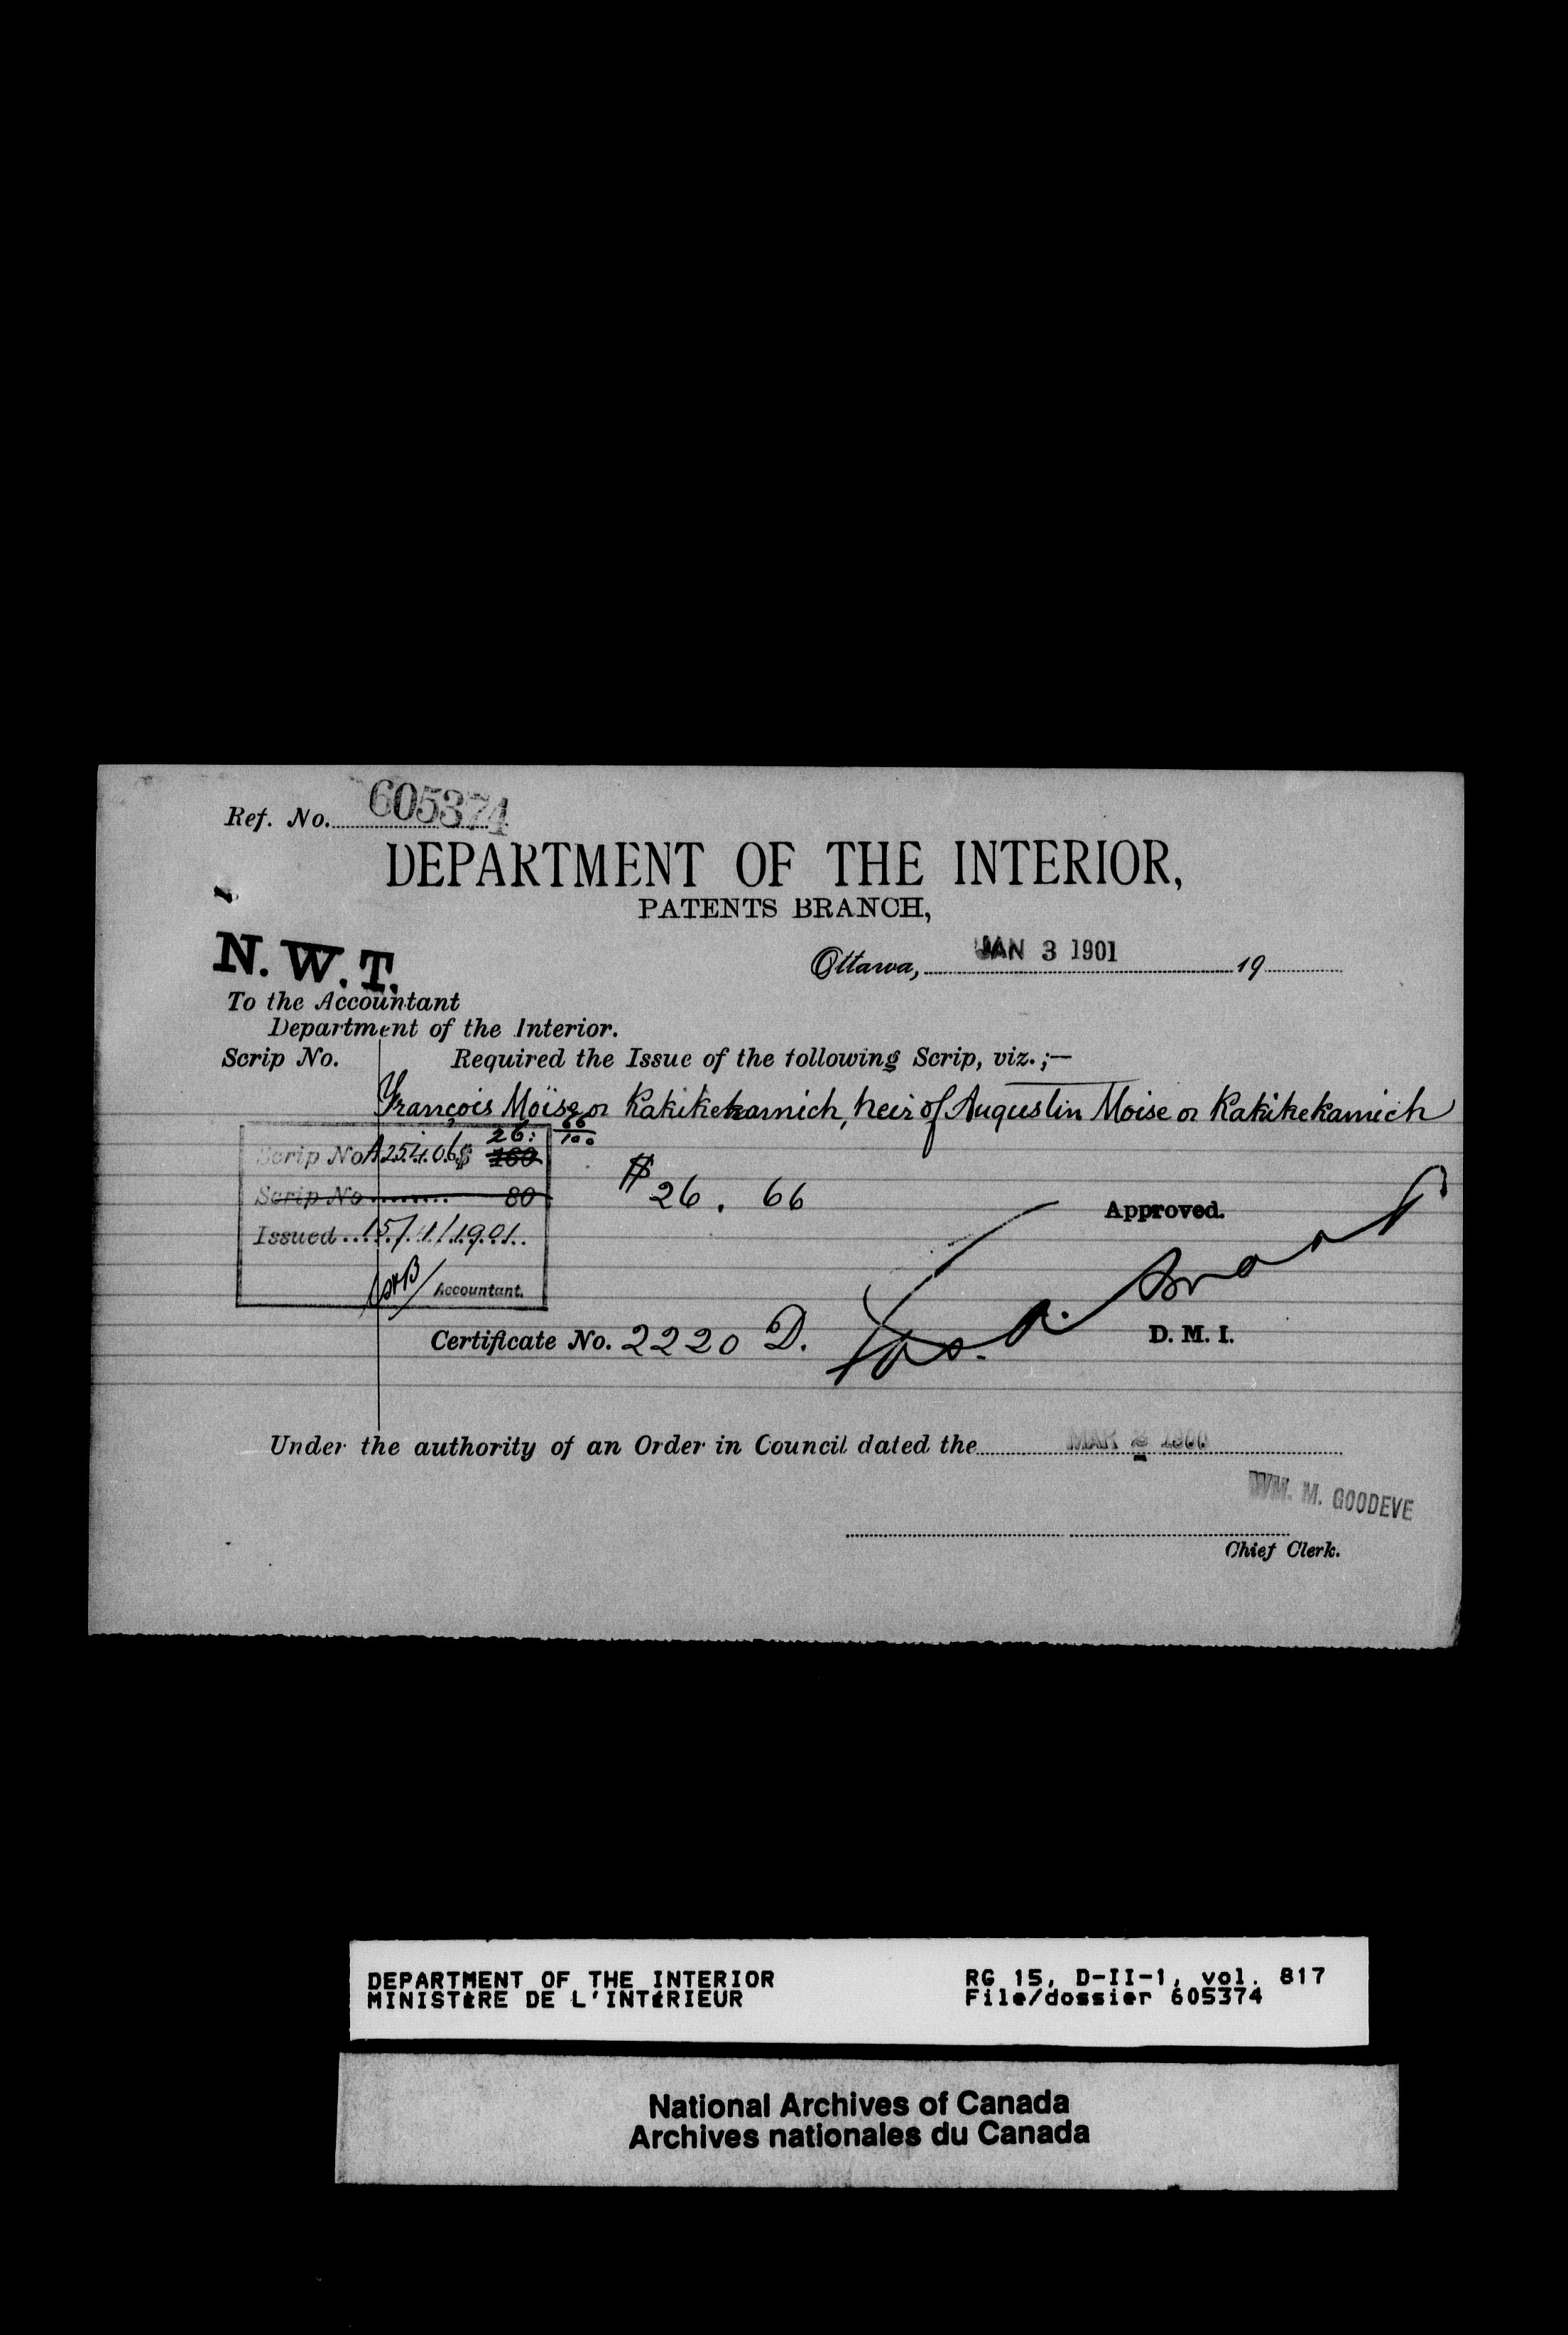 Ref. No. 605374
DEPARTMENT OF THE INTERIOR,
PATENTS BRANCH,
N. W. T.
Ottawa, JAN 3 1901 19
To the Accountant
Department of the Interior.
Scrip No. Required the Issue of the following Scrip, viz. ;—
François Moïse or Kakikekamich, heir of Augustin Moise or Kakikekamich
Scrip No A25406 $ 160 26: 66/100
Scrip No ......... 80
$26.66
Approved.
Issued ..15/1/1901..
Accountant.
Certificate No. 2220 D.
Jas. A. Smart
D. M. I.
Under the authority of an Order in Council dated the MAR 2 1900
WM. M. GOODEVE
Chief Clerk.
DEPARTMENT OF THE INTERIOR RG 15, D-II-1, vol. 817
MINISTÈRE DE L'INTÉRIEUR File/dossier 605374
National Archives of Canada
Archives nationales du Canada